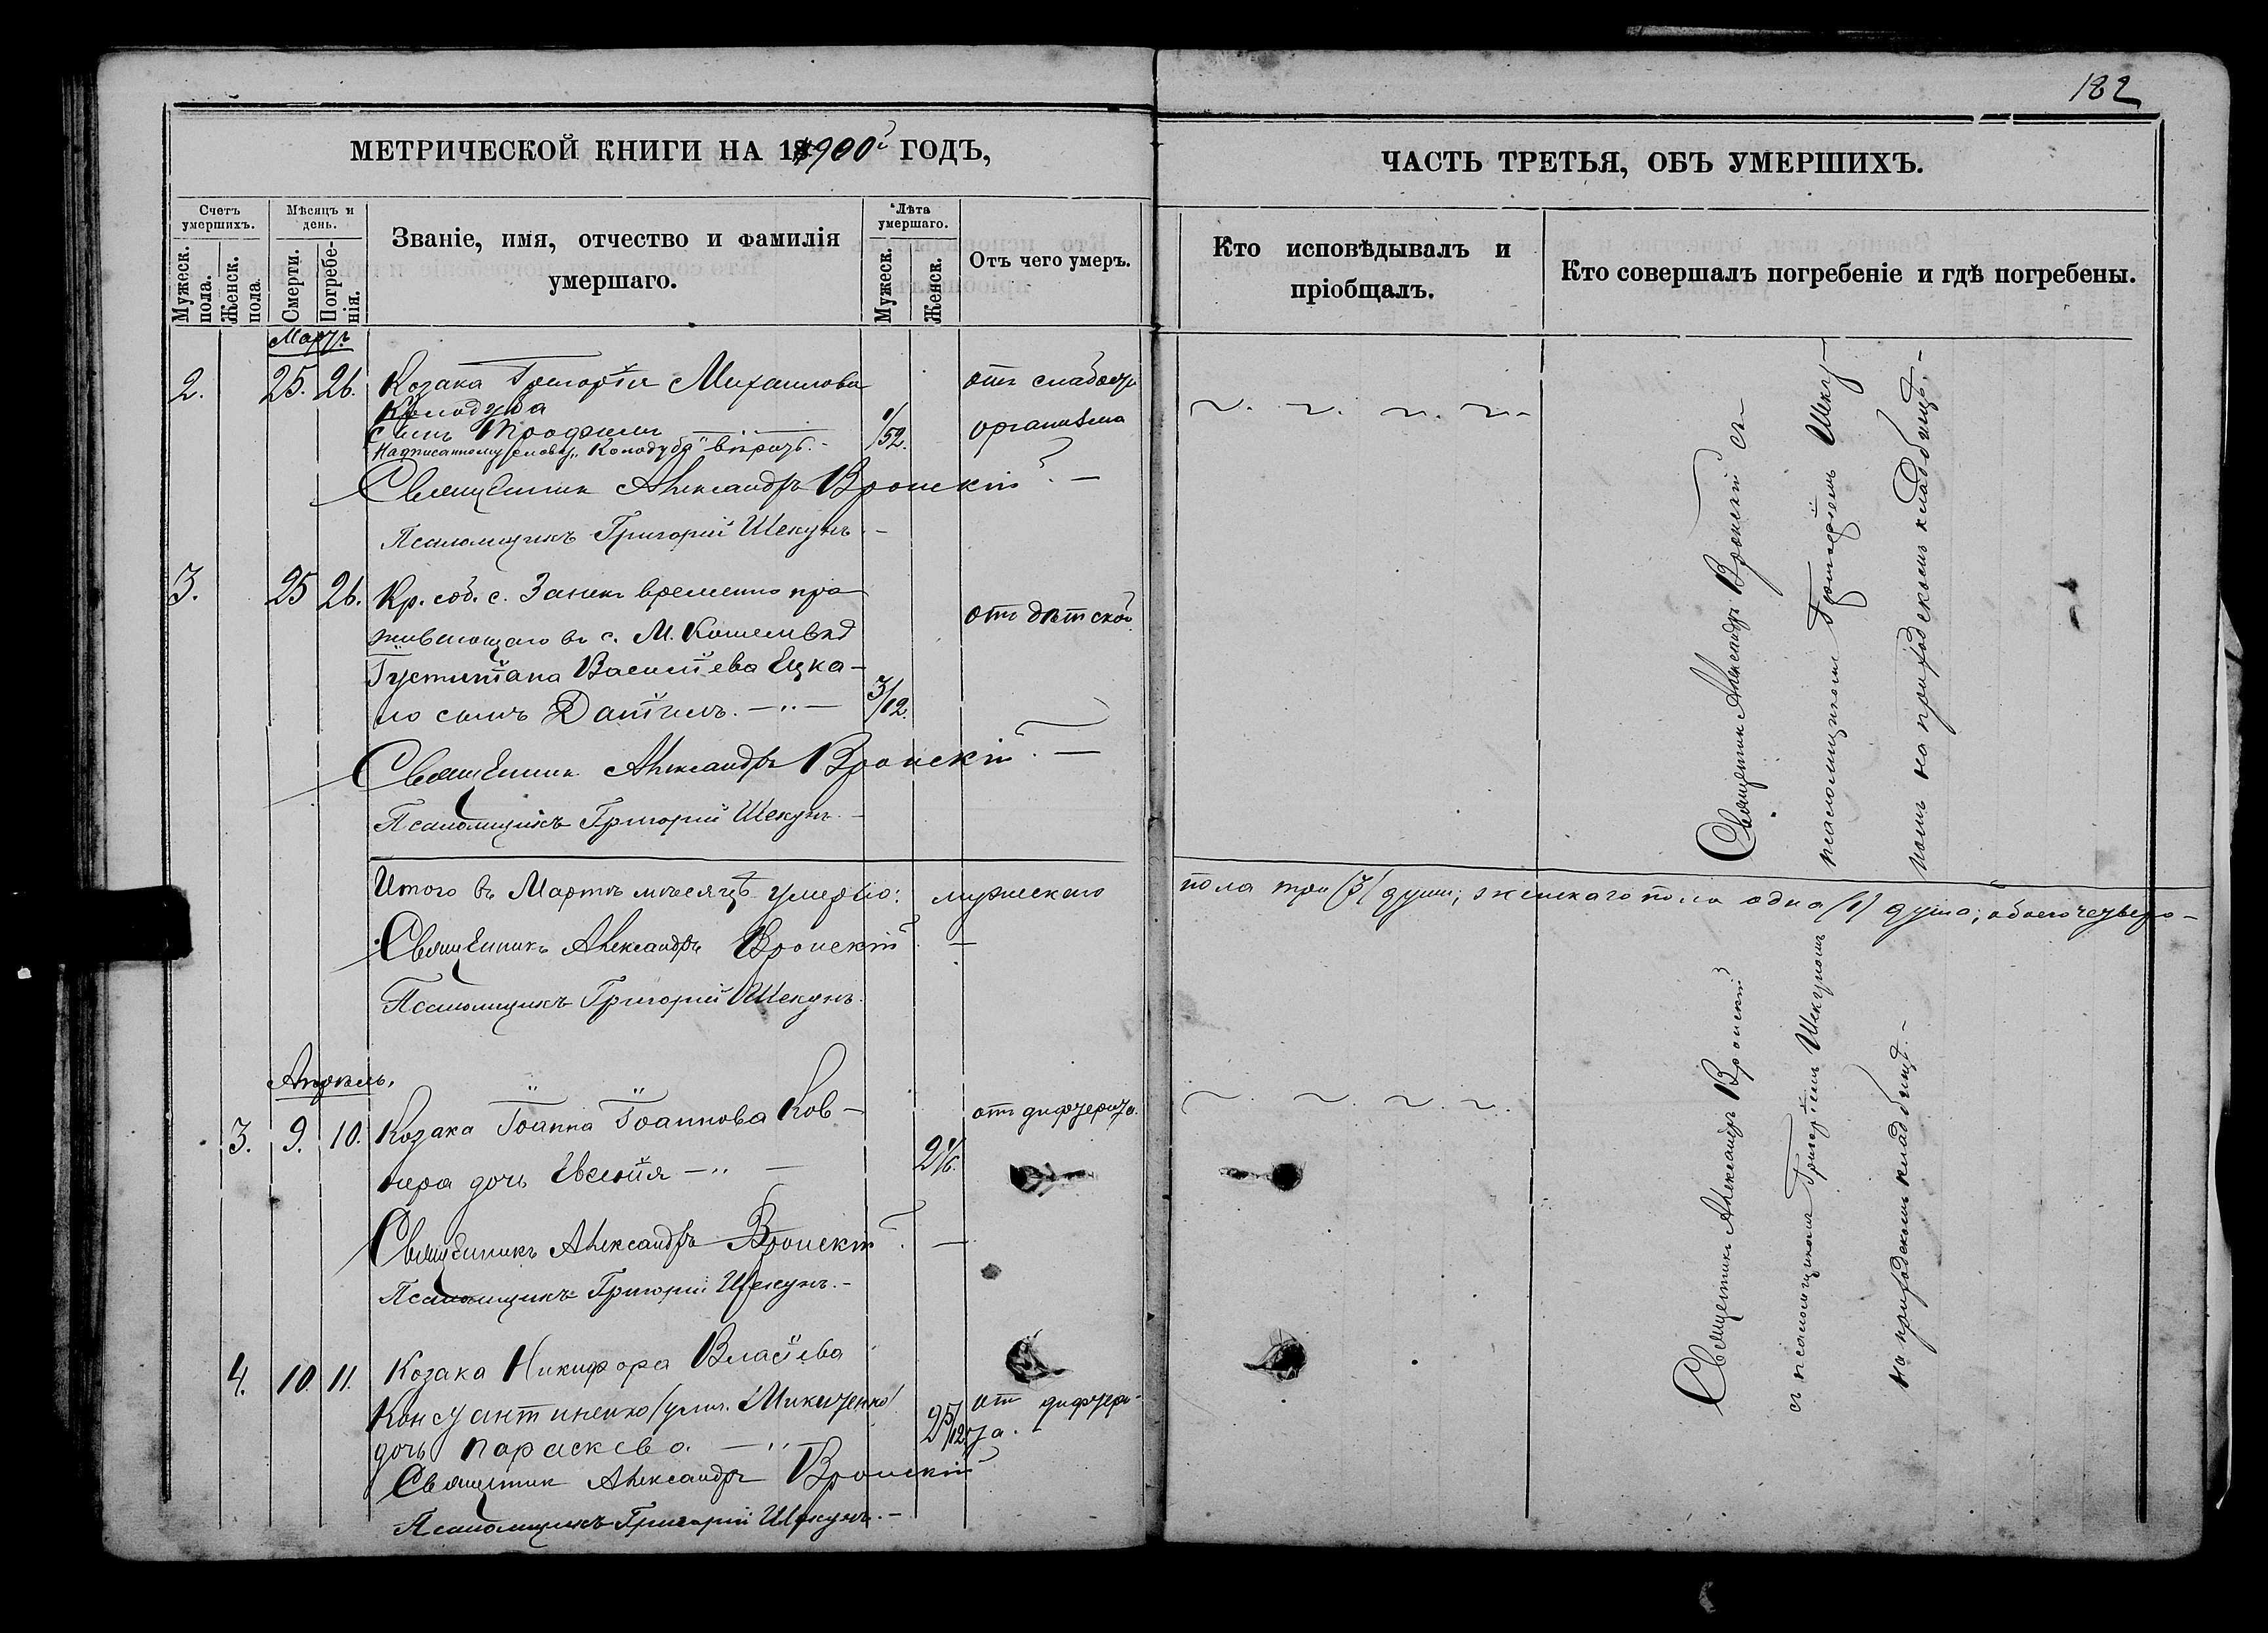 182
МЕТРИЧЕСКОЙ КНИГИ НА 1900й ГОДЪ,
ЧАСТЬ ТРЕТЬЯ, ОБЪ УМЕРШИХЪ.
Счетъ умершихъ.
Мужеск. пола.
Женск. пола.
Мѣсяцъ и день.
Смерти.
Погребенія.
Званіе, имя, отчество и фамилія
умершаго.
Лѣта умершаго.
Мужеск.
Женск.
Отъ чего умеръ.
Кто исповѣдывалъ и
пріобщалъ.
Кто совершалъ погребеніе и гдѣ погребены.
Мартъ
2. 25. 26. Козака Григорія Михаилова
Колодуба
сынъ Трофимъ 1/52. отъ слабости
организма
Надписанному слову "Колодуба" вѣрить.
Священникъ Александръ Вронскій
Псаломщикъ Григорій Шекунъ
3. 25 26. Кр. соб. с. Занек временно про
живающаго въ с. М.
Василіева Ецка-
ло сынъ Даніилъ. 3/12. отъ дѣтской
Священникъ Александръ Вронскій
Псаломщикъ Григорій Шекунъ
Священникъ Александръ Вронскій съ
псаломщикомъ Григоріемъ Шеку-
номъ на приходскомъ кладбищѣ.
Итого въ Мартѣ мѣсяцѣ умерло: мужескаго пола три /3/ души; женскаго пола одна /1/ душа; обоего четверо-
Священникъ Александръ Вронскій
Псаломщикъ Григорій Шекунъ.
Апрѣль.
3. 9. 10. Козака Іоанна Іоаннова Ков-
нера дочь Евгенія 2 1/6. отъ дифтерита.
Священникъ Александръ Вронскій
Псаломщикъ Григорій Шекунъ.
4. 10. 11. Козака Никифора Власіева
Константиненко /улич. Микитенко/
дочь Параскева. 2 5/12 отъ дифтери-
та.
Священникъ Александръ Вронскій
Псаломщикъ Григорій Шекунъ.
Священникъ Александръ Вронскій
съ псаломщикомъ Григоріемъ Шекуномъ
на приходскомъ кладбищѣ.